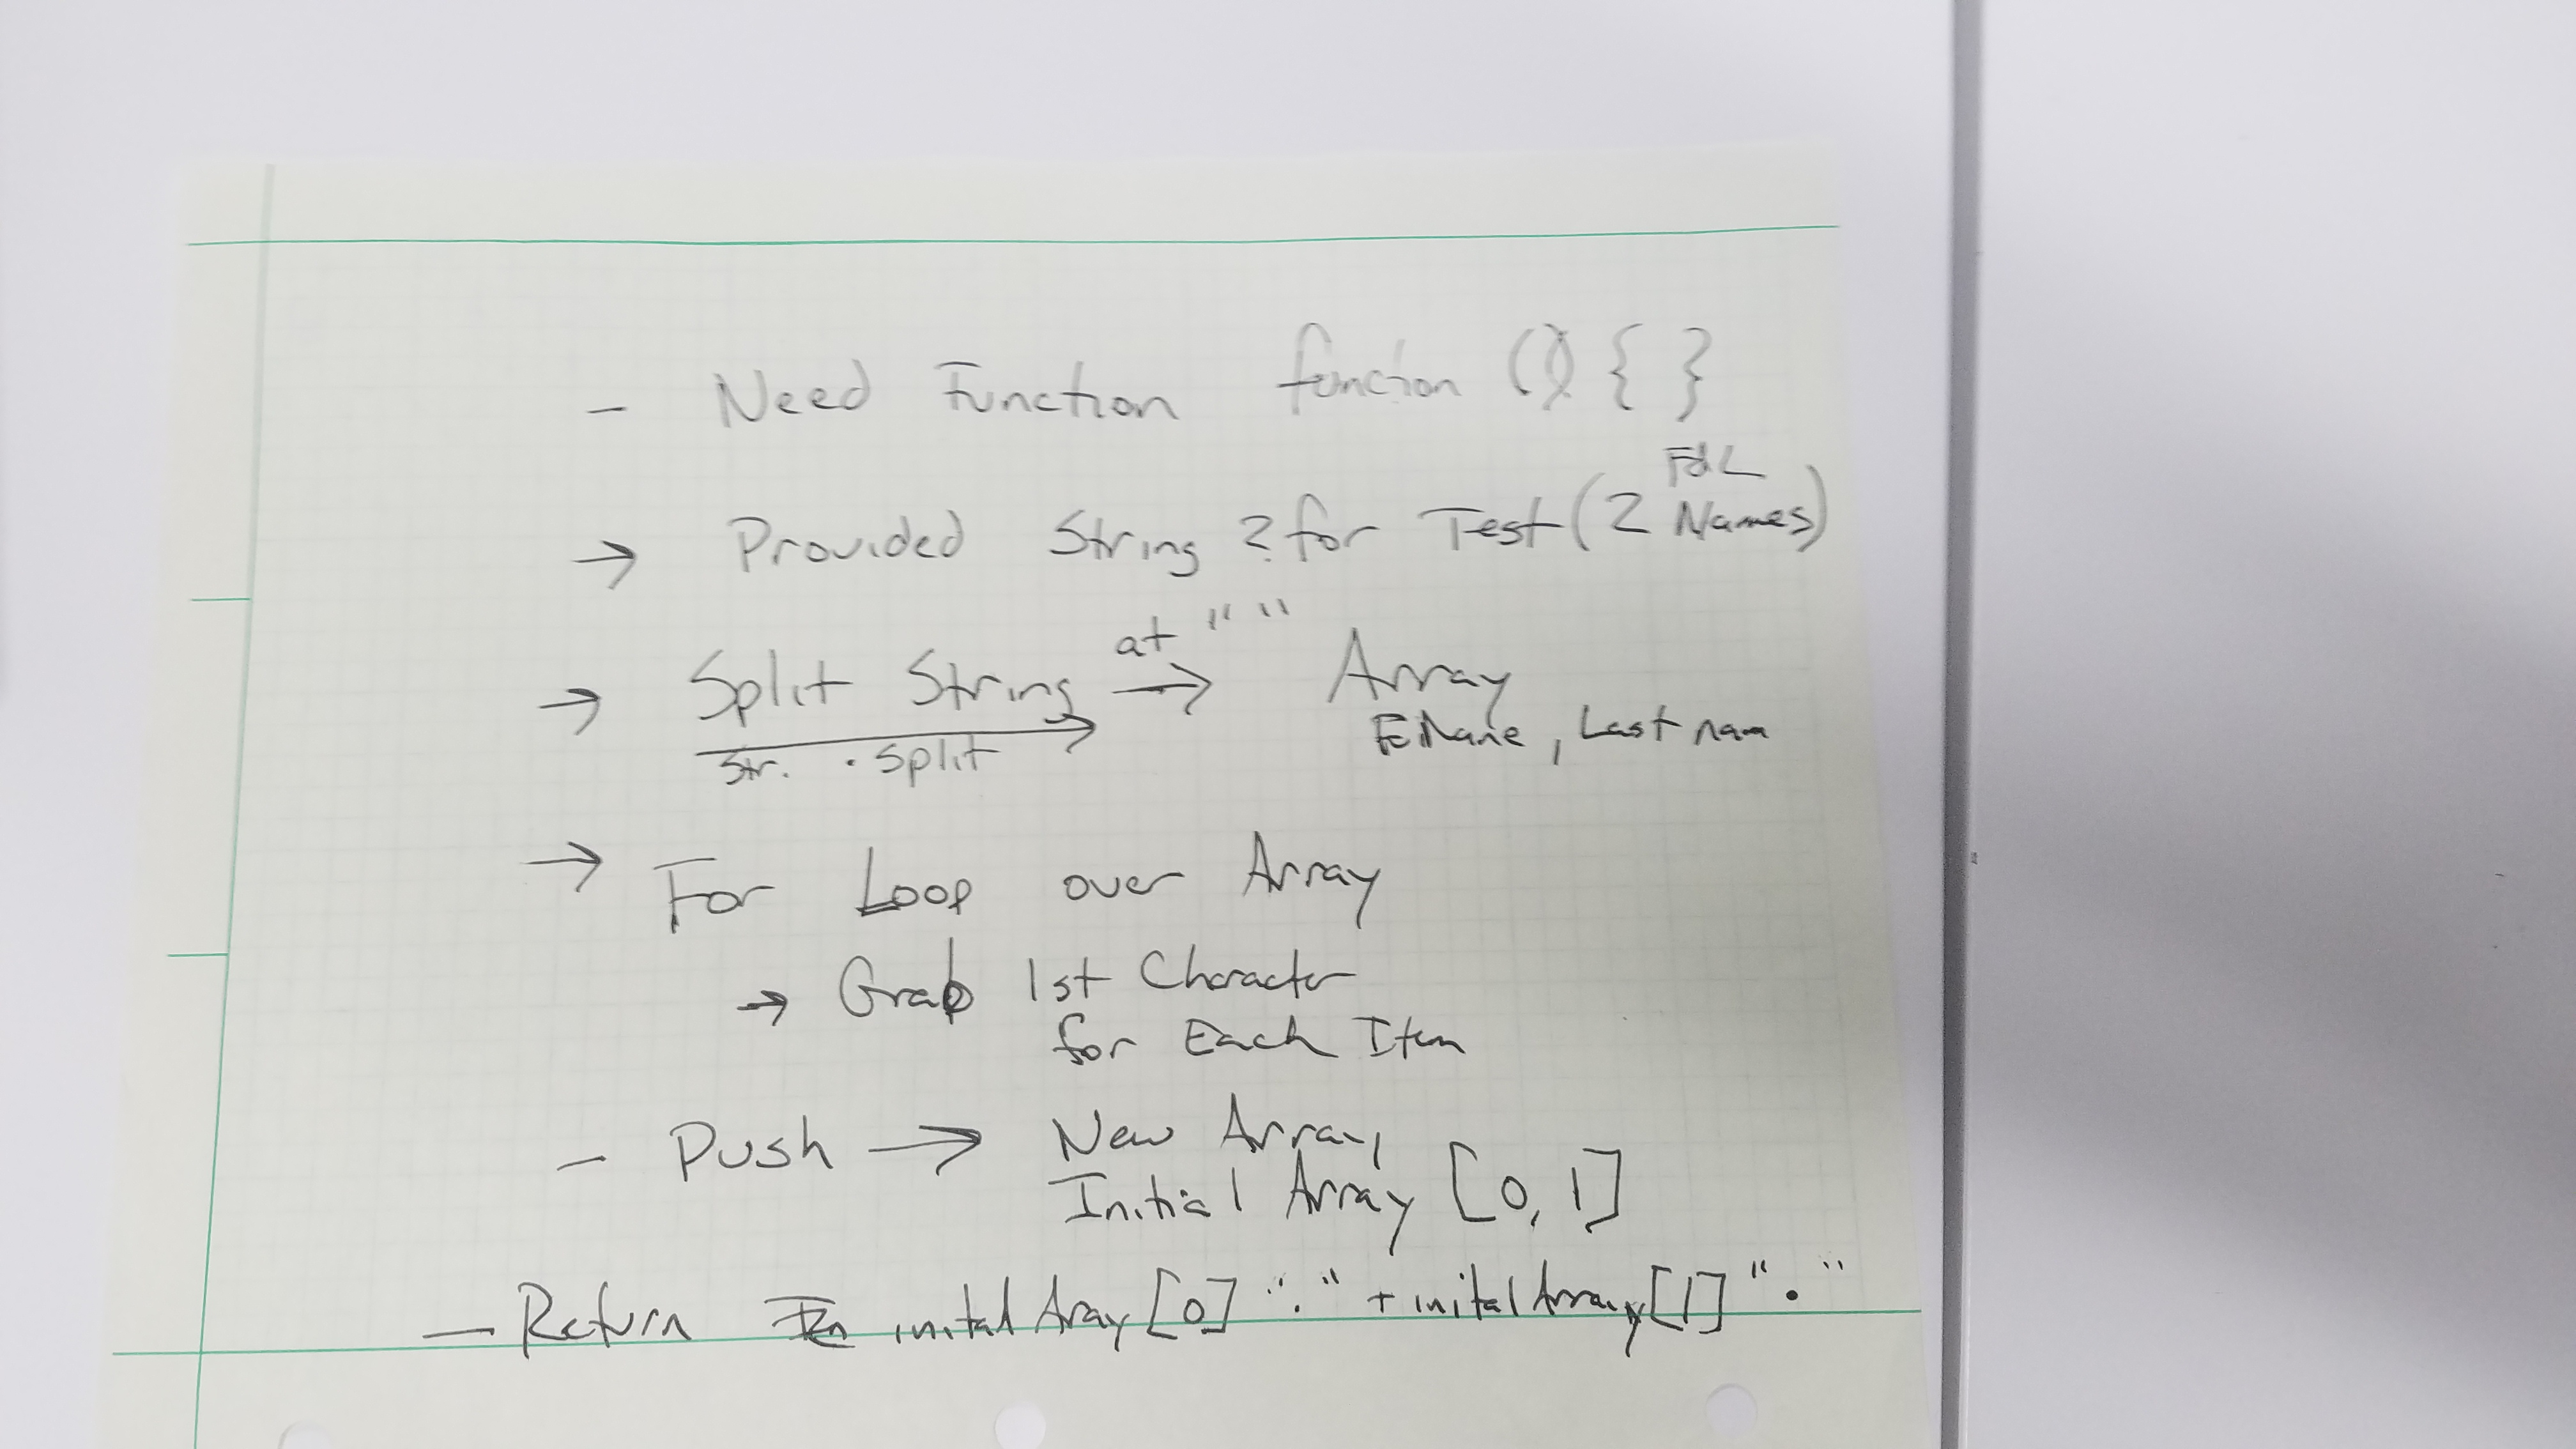 - Need Function function () { }
→ Provided String 2 for Test (2 Names)
F&L
→ Split String → Array
at " "
Str. .split FName, Last nam
→ For Loop over Array
→ Grab 1st Character
for Each Item
- Push → New Array
Initial Array [0,1]
- Return initalArray[0] "." + initalArray[1] "."